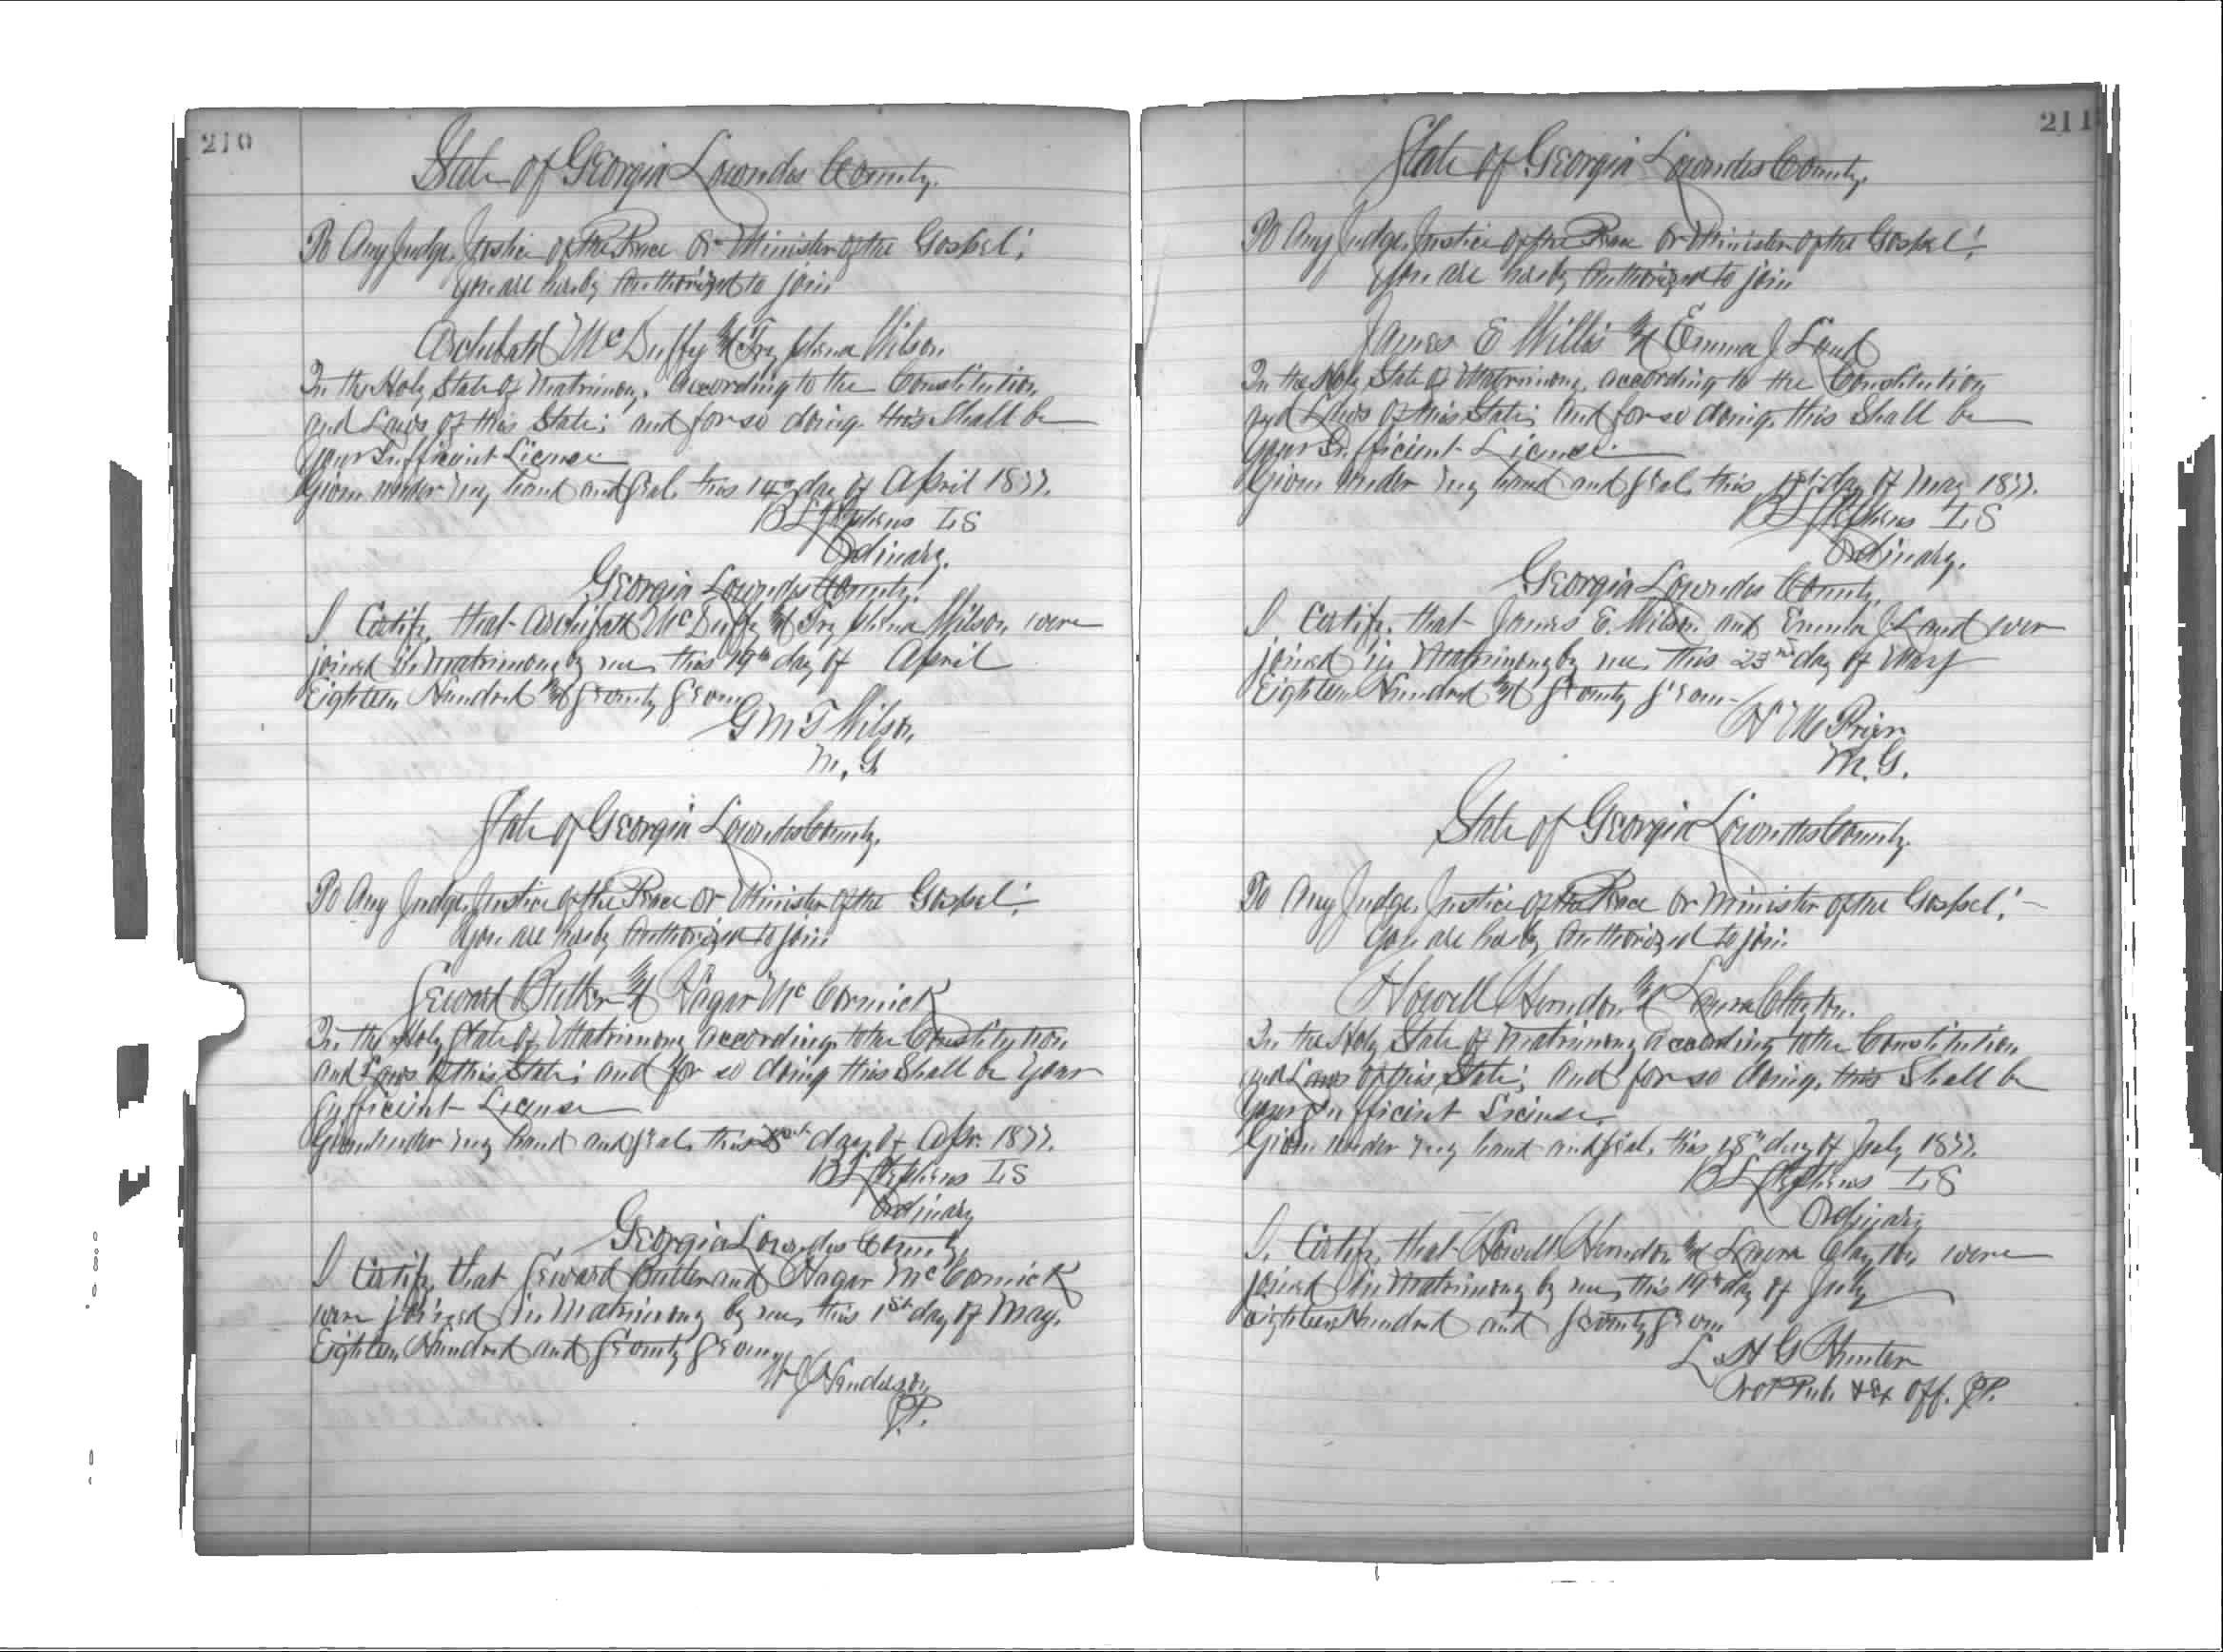 210
State of Georgia Lowndes County.
To Any Judge, Justice of the Peace Or Minister of the Gospel:
You are hereby Authorized to join
Archibald McDuffy and Tryphena Wilson
In the Holy State of Matrimony, According to the Constitution
and Laws of this State; and for so doing this Shall be
Your Sufficient License
Given under my hand and Seal, this 14th day of April 1877.
B L Stephens L S
Ordinary.
Georgia Lowndes County.
I Certify, that Archibald McDuffy and Tryphena Wilson were
joined in Matrimony by me, this 19th day of April
Eighteen Hundred and Seventy Seven
G M T Wilson,
M. G.
State of Georgia Lowndes County.
To Any Judge, Justice of the Peace Or Minister of the Gospel:
You are hereby Authorized to join
Seward Butler and Hagar McCormick
In the Holy State of Matrimony According to the Constitution
and Laws of this State; and for so doing this Shall be Your
Sufficient License
Given under my hand and Seal, this day of Apr. 1877.
B L Stephens L S
Ordinary
Georgia Lowndes County,
I Certify, that Seward Butler and Hagar McCormick
were joined in Matrimony by me, this 1st day of May.
Eighteen Hundred and Seventy Seven
Henderson
J.P.
211
State of Georgia Lowndes County,
To Any Judge, Justice of the Peace Or Minister of the Gospel:
You are hereby Authorized to join
James E Willis and Emma J Land
In the Holy State of Matrimony, according to the Constitution
and Laws of this State; And for so doing, this Shall be
Your Sufficient License.
Given under my hand and Seal, this day of May 1877.
B L Stephens L S
Ordinary.
Georgia Lowndes County.
I Certify, that James E. and Emma J Land were
joined in Matrimony by me, this 23rd day of May
Eighteen Hundred and Seventy Seven
M.G.
State of Georgia Lowndes County.
To Any Judge, Justice of the Peace Or Minister of the Gospel:
You are hereby Authorized to join
Howell Herndon and Laura Clayton.
In the Holy State of Matrimony according to the Constitution
and Laws of this State; And for so doing, this Shall be
Your Sufficient License.
Given under my hand and Seal, this 18th day of July 1877.
B L Stephens L S
Ordinary
I Certify, that Howell Herndon and Laura Clayton were
joined in Matrimony by me, this 19th day of July
eighteen Hundred and Seventy Seven
H G Hunter
Not Pub. & Ex Off. J.P.